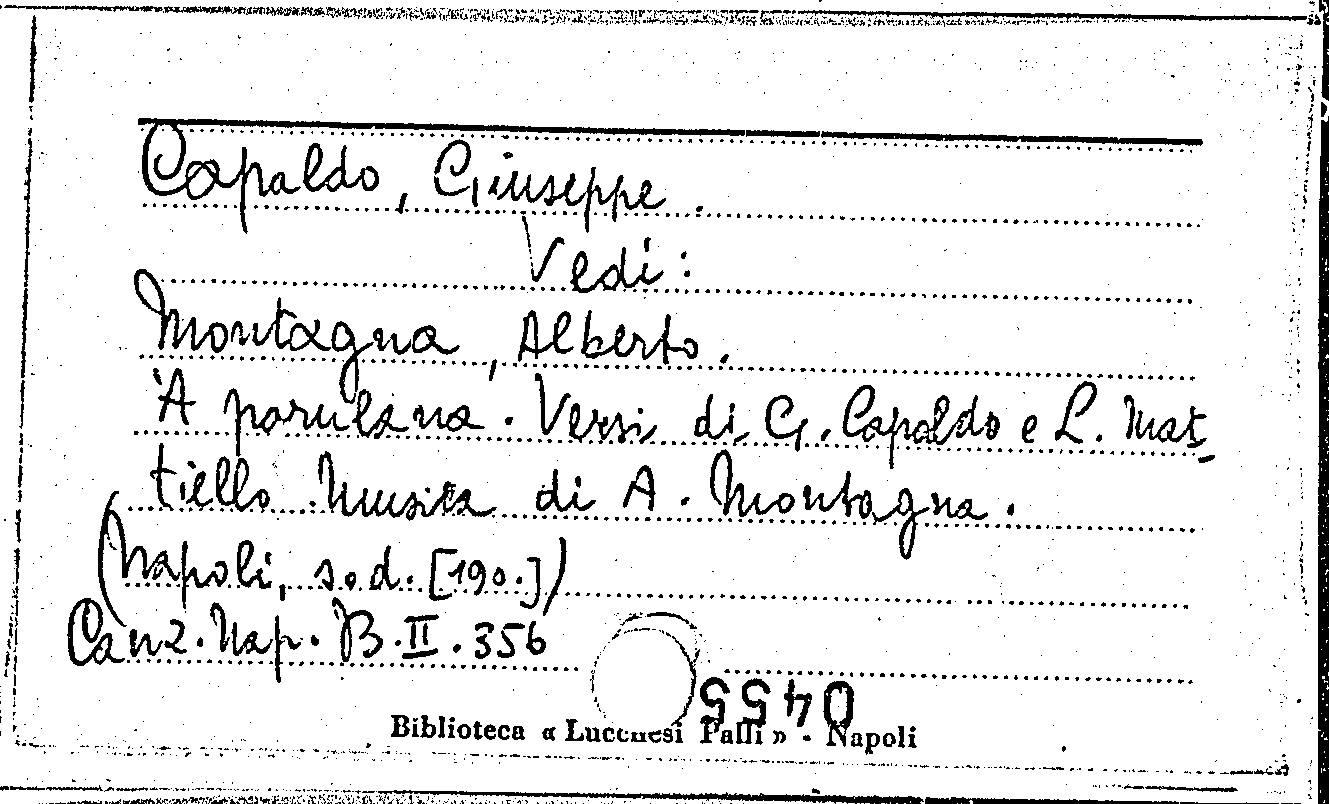 Capaldo, Giuseppe.
Vedi:
Montagna, Alberto.
'A parulana. Versi di G. Capaldo e L. Mat-
tiello. Musica di A. Montagna.
(Napoli, s.d. [190.])
Canz. Nap. B.II.356
0455
Biblioteca « Lucchesi Palli » - Napoli